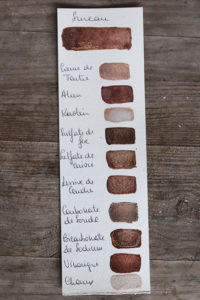 Sureau
Crème de
Tartre
Alun
Kaolin
Sulfate de
fer
Sulfate de
cuivre
Lessive de
Cendre
Carbonate
de soude
Bicarbonate
de sodium
Vinaigre
Chaux